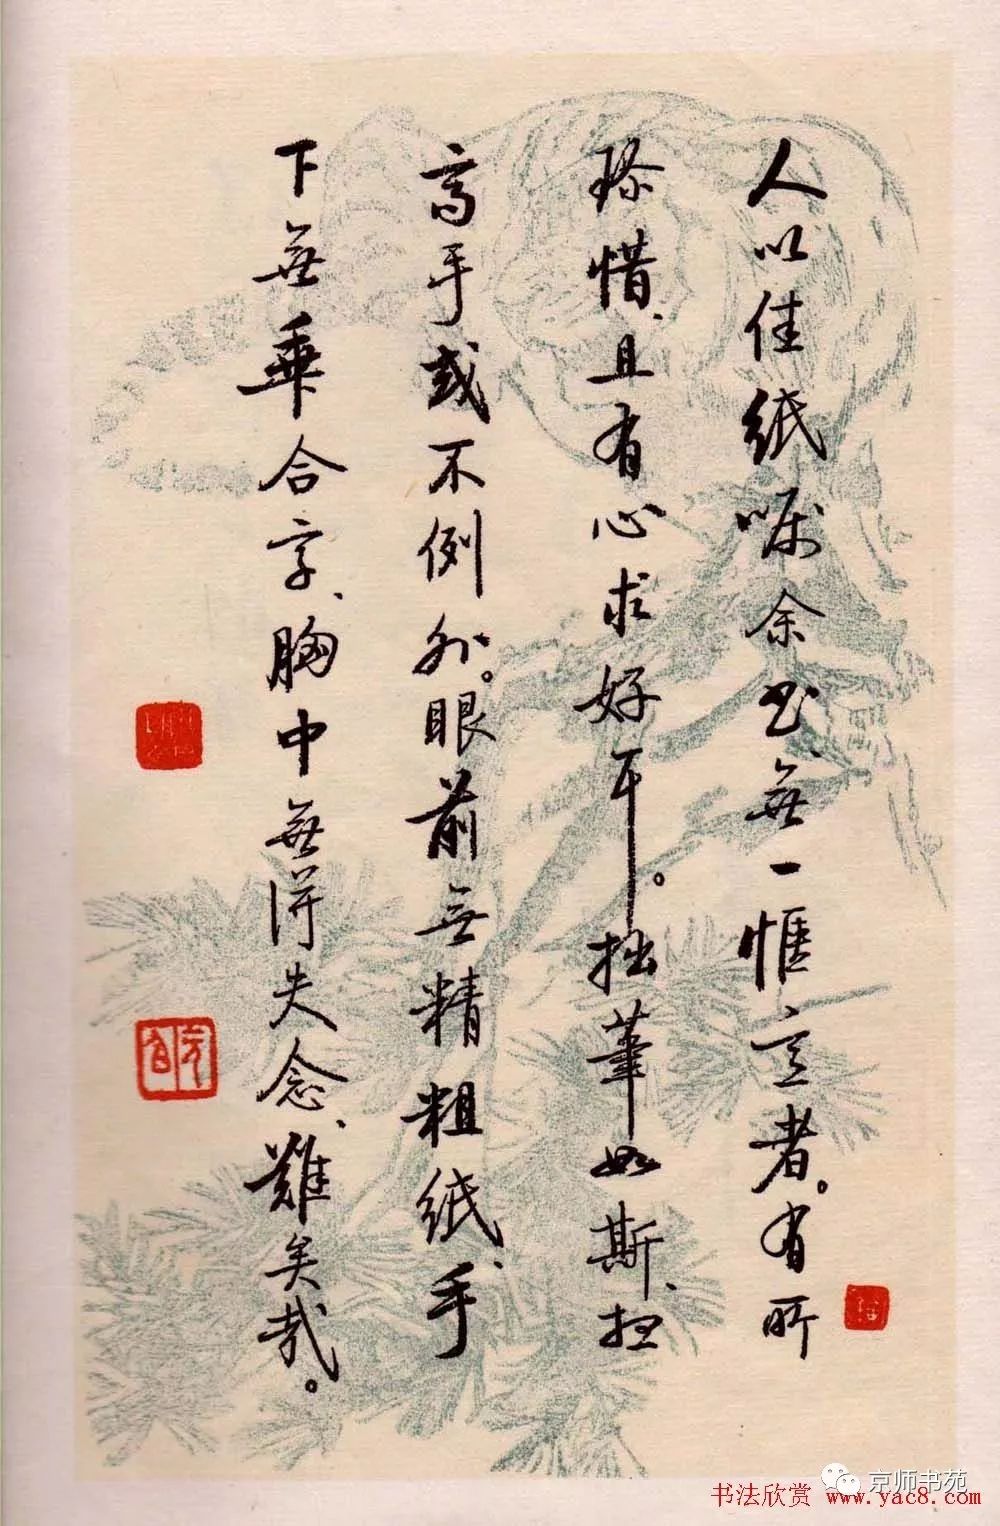 人以佳紙嘱余书、無一惬意者。有所
珍惜、且有心求好耳。拙筆如斯、想
高手或不例外。眼前无精粗紙、手
下無乖合字、胸中無得失念、難矣哉。
元白
京师书苑
书法欣赏 www.yac8.com